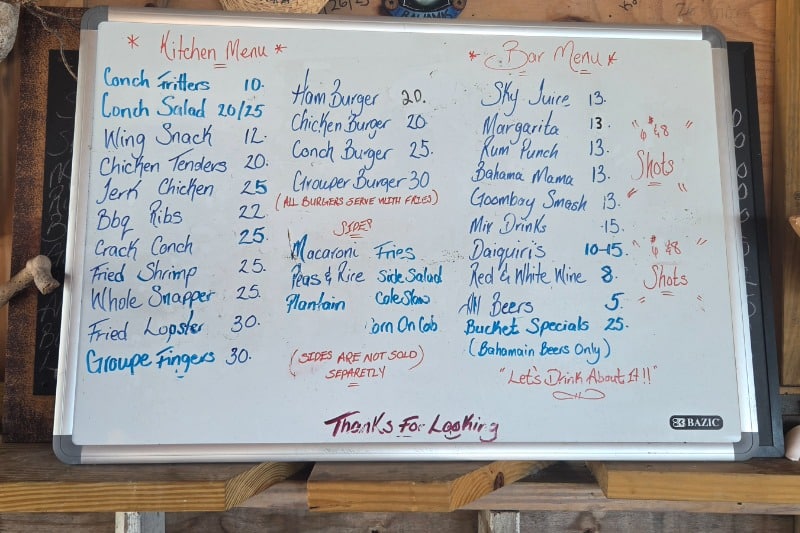 * Kitchen Menu *
Conch Fritters 10.
Conch Salad 20/25
Wing Snack 12.
Chicken Tenders 20.
Jerk Chicken 25
Bbq Ribs 22
Crack Conch 25.
Fried Shrimp 25.
Whole Snapper 25.
Fried Lopster 30.
Groupe Fingers 30.
Ham Burger 20.
Chicken Burger 20.
Conch Burger 25.
Grouper Burger 30
(ALL BURGERS SERVE WITH FRIES)
SIDES
Macaroni Fries
Peas & Rice Side Salad
Plantain Cole Slaw
orn On Cob
(SIDES ARE NOT SOLD
SEPARETLY)
* Bar Menu *
Sky Juice 13.
Margarita 13.
Rum Punch 13.
Bahama Mama 13.
Goombay Smash 13.
Mix Drinks 15.
Daiquiri's 10-15.
Red & White Wine 8.
All Beers 5.
Bucket Specials 25.
(Bahamain Beers Only)
"Let's Drink About It!!"
Shots
Shots
Thanks For Looking
BAZIC